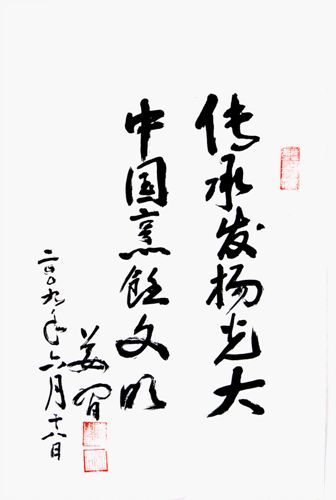 传承发扬光大
中国烹饪文明
姜习
二〇〇九年六月十八日